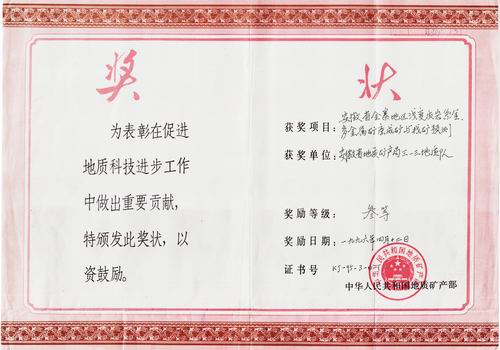 奖 状
为表彰在促进
地质科技进步工作
中做出重要贡献，
特颁发此奖状，以
资鼓励。
获奖项目：安徽省金寨地区浅变质岩系金、
多金属矿床成矿与找矿
获奖单位：安徽省地质矿产局三一三地质队
奖励等级：叁等
奖励日期：一九九六年四月十二日
证书号 KJ-95-3-
中华人民共和国地质矿产部